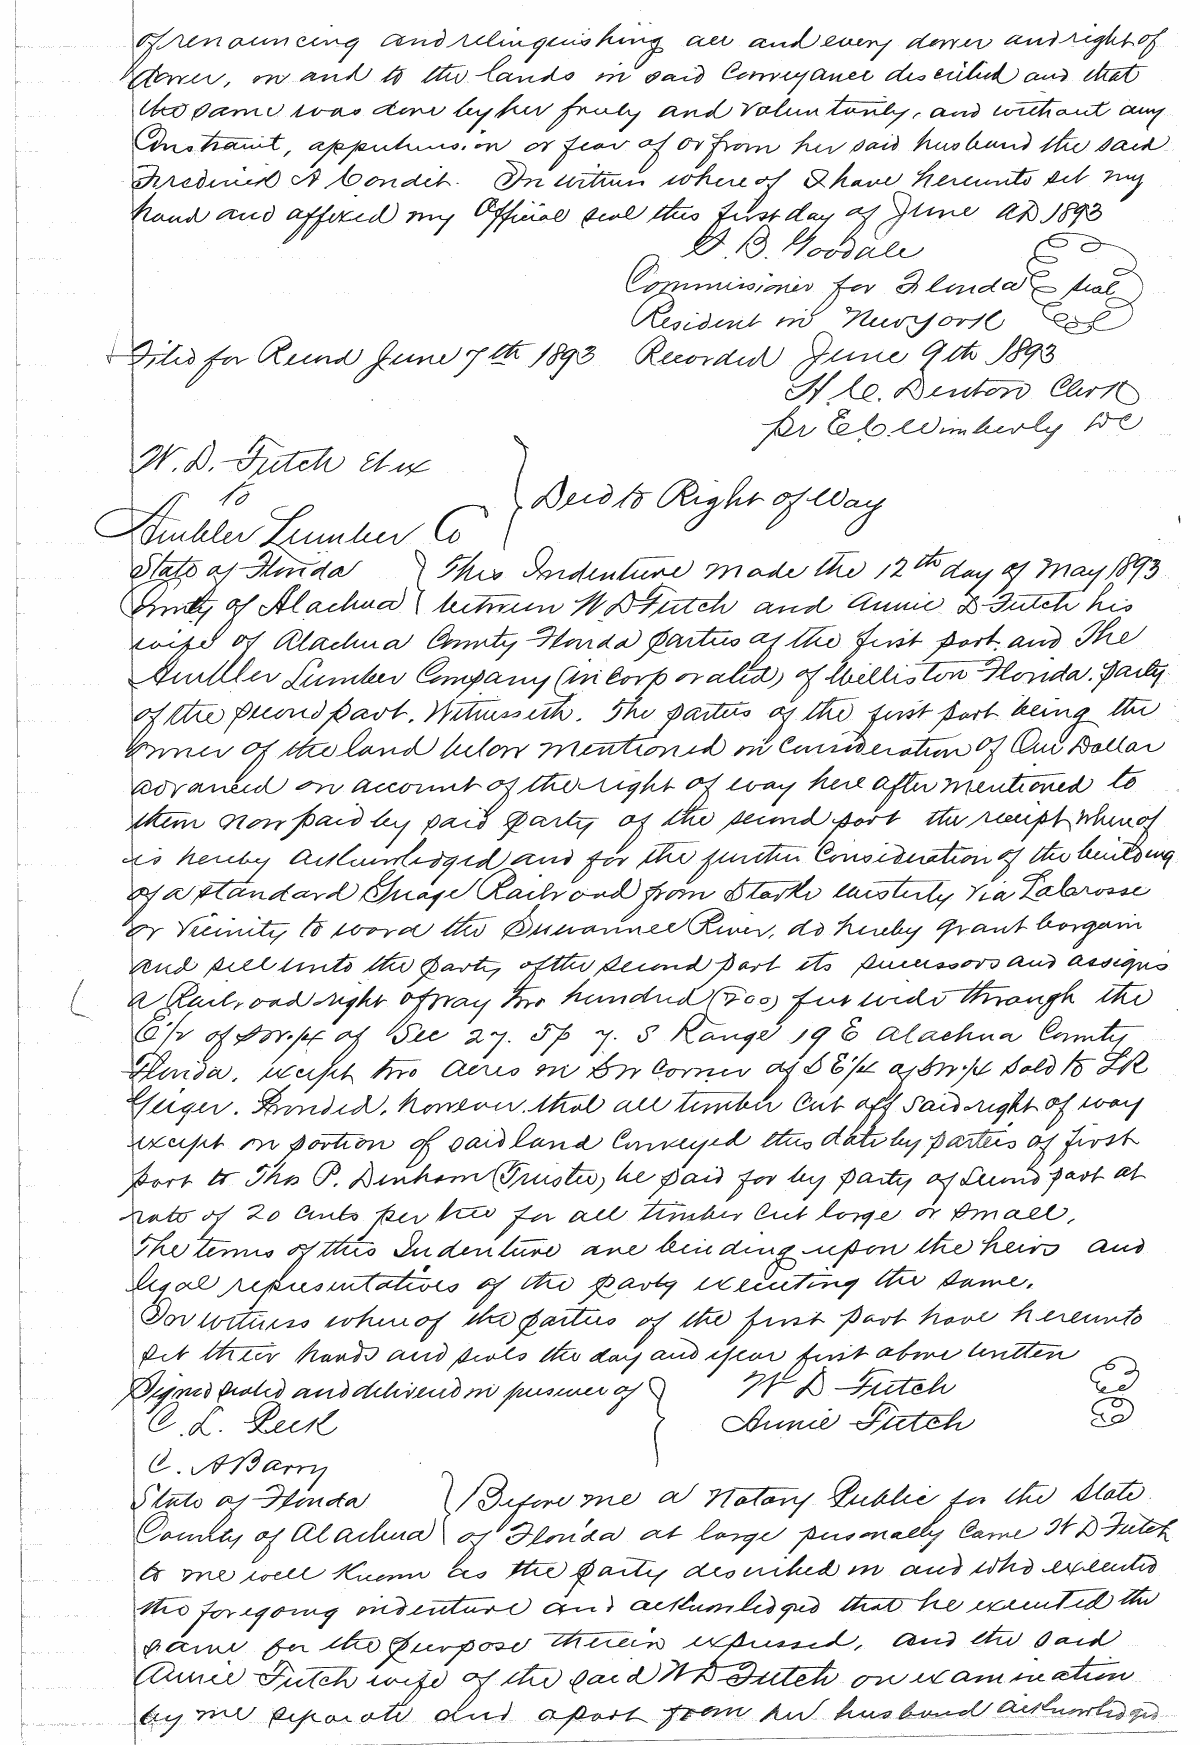 of renouncing and relinquishing all and every dower and right of
dower, on and to the lands in said Conveyance described and that
the same was done by her freely and voluntarily, and without any
Constraint, apprehension or fear of or from her said husband the said
Frederick A Condit. In witness where of I have hereunto set my
hand and affixed my Official seal this first day of June AD 1893
B. Goodale
Commissioner for Florida seal
Resident in New York
Filed for Record June 7th 1893 Recorded June 9th 1893
H. C. Denton Clerk
pr E C Wimberly DC
W. D. Futch et ux
to
Deed to Right of Way
Ambler Lumber Co
State of Florida This Indenture made the 12th day of May 1893
County of Alachua between W D Futch and Annie D Futch his
wife of Alachua County Florida parties of the first part. and The
Ambler Lumber Company (incorporated) of Williston Florida. party
of the second part. Witnesseth. The parties of the first part being the
owner of the land below mentioned in Consideration of One Dollar
advanced on account of the right of way here after mentioned to
them now paid by said party of the second part the receipt where of
is hereby acknowledged and for the further Consideration of the building
of a standard Guage Railroad from Starke westerly via LaCrosse
or Vicinity to ward the Suwannee River, do hereby grant bargain
and sell unto the party of the second part its successors and assigns
a Rail road right of way two hundred (200) feet wide through the
E 1/2 of SW. 1/4 of Sec 27. Tp 7. S Range 19 E Alachua County
Florida. except two Acres in SW Corner of SE 1/4 of SW. 1/4 sold to
Geiger. Provided, however, that all timber Cut off said right of way
except on portion of said land Conveyed this date by parties of first
part to Thos P. Denham (Trustee) be paid for by party of Second part at
rate of 20 cents per tree for all timber cut large or small.
The terms of this Indenture are binding upon the heirs and
legal representatives of the party executing the same.
In witness where of the parties of the first part have hereunto
set their hands and seals the day and year first above written
Signed sealed and delivered in presence of W D Futch
C. L. Peck Annie Futch
C. A Barry
State of Florida Before me a Notary Public for the State
County of Alachua of Florida at large personally came W D Futch
to me well known as the party described in and who executed
the foregoing indenture and acknowledged that he executed the
same for the purpose therein expressed, and the said
Annie Futch wife of the said W D Futch on examination
by me separate and apart from her husband acknowledged